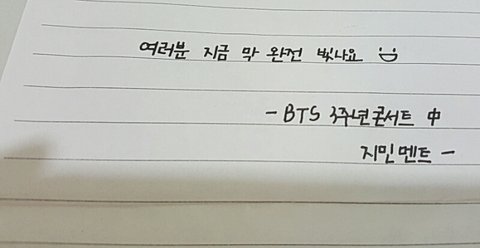 여러분 지금 막 완전 빛나요 :D
- BTS 3주년콘서트 中
지민멘트 -